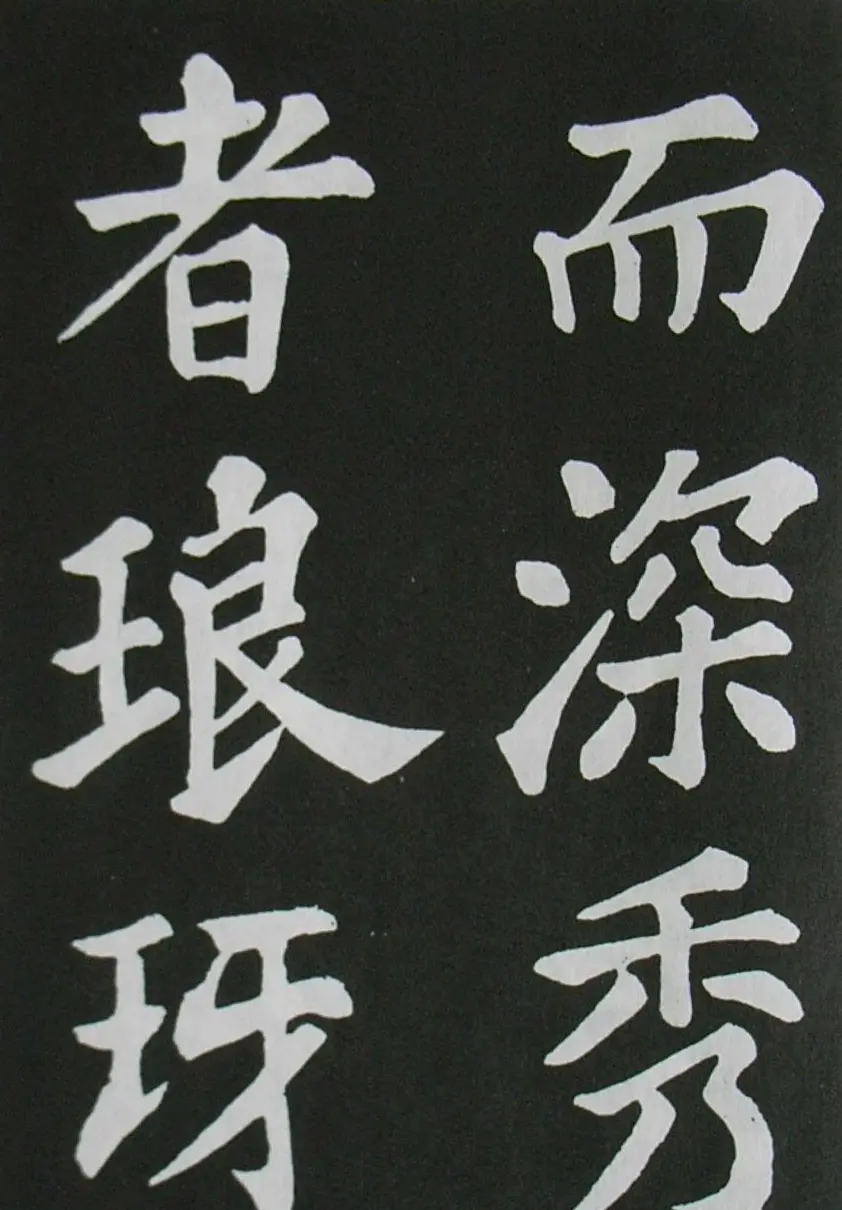 而深秀
者琅玡